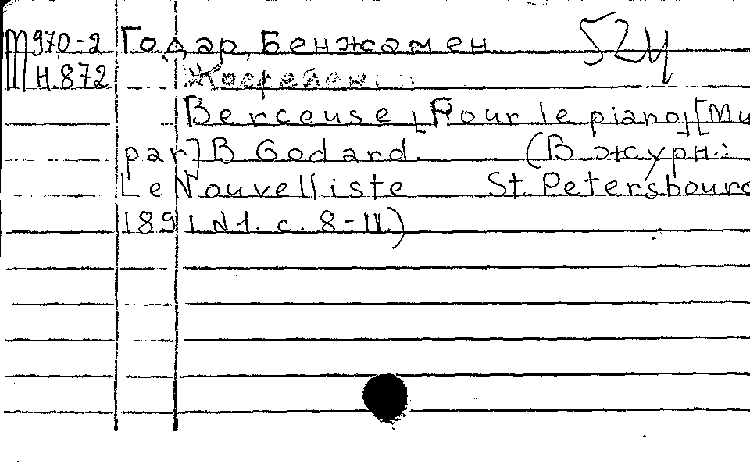 M970-2 Годар, Бенжамен 524
Н.872
Berceuse [Pour le piano] [Mu
par] B Godard. (В журн.:
Le Nouvelliste St. Petersbourg
1891 N1. с. 8-11.)